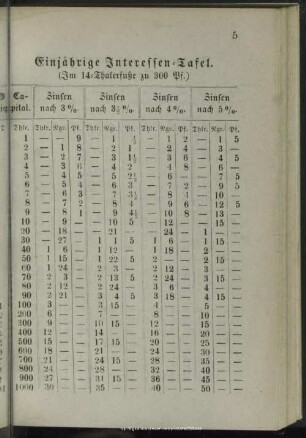 5
Einjährige Interessen-Tafel.
(Im 14-Thalerfuße zu 300 Pf.)
Ca- Zinsen Zinsen Zinsen Zinsen
pital. nach 3%. nach 3½%. nach 4%. nach 5%.
Thlr. Thlr. Ngr. Pf. Thlr. Ngr. Pf. Thlr. Ngr. Pf. Thlr. Ngr. Pf.
1 — — 9 — 1 ½ — 1 2 — 1 5
2 — 1 8 — 2 1 — 2 4 — 3 —
3 — 2 7 — 3 1½ — 3 6 — 4 5
4 — 3 6 — 4 2 — 4 8 — 6 —
5 — 4 5 — 5 2½ — 6 — — 7 5
6 — 5 4 — 6 3 — 7 2 — 9 —
7 — 6 3 — 7 3½ — 8 4 — 10 5
8 — 7 2 — 8 4 — 9 6 — 12 —
9 — 8 1 — 9 4½ — 10 8 — 13 5
10 — 9 — — 10 5 — 12 — — 15 —
20 — 18 — — 21 — — 24 — 1 — —
30 — 27 — 1 1 5 1 6 — 1 15 —
40 1 6 — 1 12 — 1 18 — 2 — —
50 1 15 — 1 22 5 2 — — 2 15 —
60 1 24 — 2 3 — 2 12 — 3 — —
70 2 3 — 2 13 5 2 24 — 3 15 —
80 2 12 — 2 24 — 3 6 — 4 — —
90 2 21 — 3 4 5 3 18 — 4 15 —
100 3 — — 3 15 — 4 — — 5 — —
200 6 — — 7 — — 8 — — 10 — —
300 9 — — 10 15 — 12 — — 15 — —
400 12 — — 14 — — 16 — — 20 — —
500 15 — — 17 15 — 20 — — 25 — —
600 18 — — 21 — — 24 — — 30 — —
700 21 — — 24 15 — 28 — — 35 — —
800 24 — — 28 — — 32 — — 40 — —
900 27 — — 31 15 — 36 — — 45 — —
1000 30 — — 35 — — 40 — — 50 — —